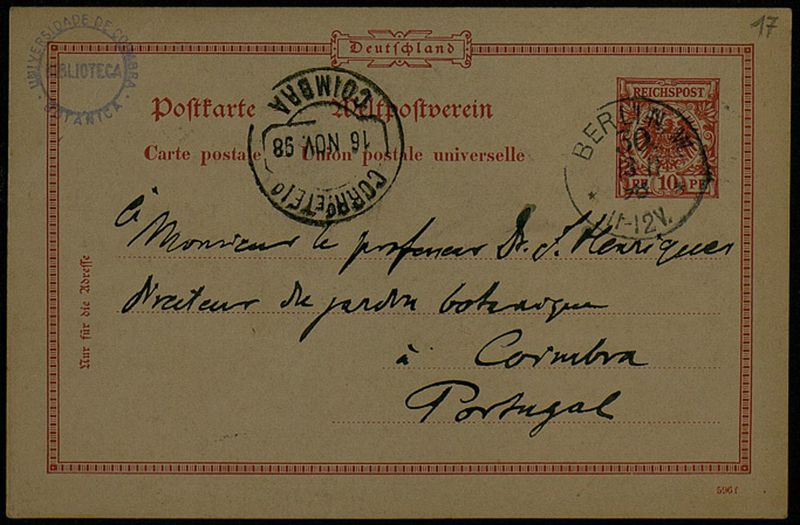 17
UNIVERSIDADE DE COIMBRA
BIBLIOTECA
BOTANICA
Deutschland
Postkarte Weltpostverein
Carte postale Union postale universelle
REICHSPOST
10 PF
BERLIN W
11-12V.
COIMBRA
16 NOV. 98
CORRO E TELO
à
Monsieur le professeur Dr. J. Henriques
directeur du jardin botanique
à Coimbra
Portugal
Nur für die Adresse
596 f